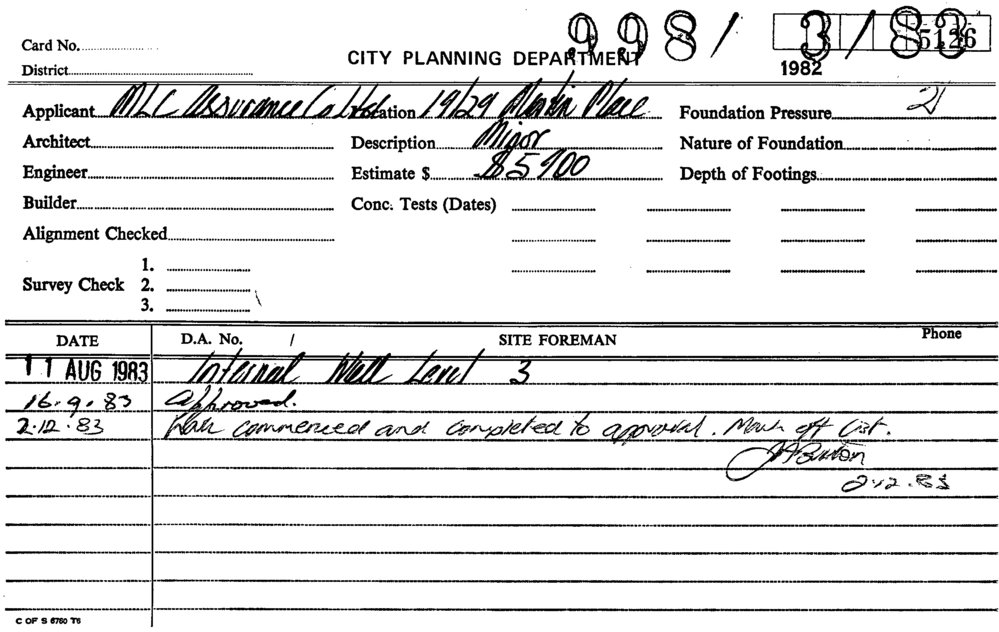 998/ 3/83
5126
Card No.
CITY PLANNING DEPARTMENT
1982
District
Applicant MLC Assurance Co Ltd Location 19/29 Martin Place Foundation Pressure 21
Architect Description Minor Nature of Foundation
Engineer Estimate $ $5900 Depth of Footings
Builder Conc. Tests (Dates)
Alignment Checked
1.
Survey Check 2.
3.
DATE D.A. No. / SITE FOREMAN Phone
11 AUG 1983 Internal Wall Level 3
16.9.83 Approved.
2.12.83 commenced and completed to approval. Mark off list.
2.12.83
C OF S 6760 T6